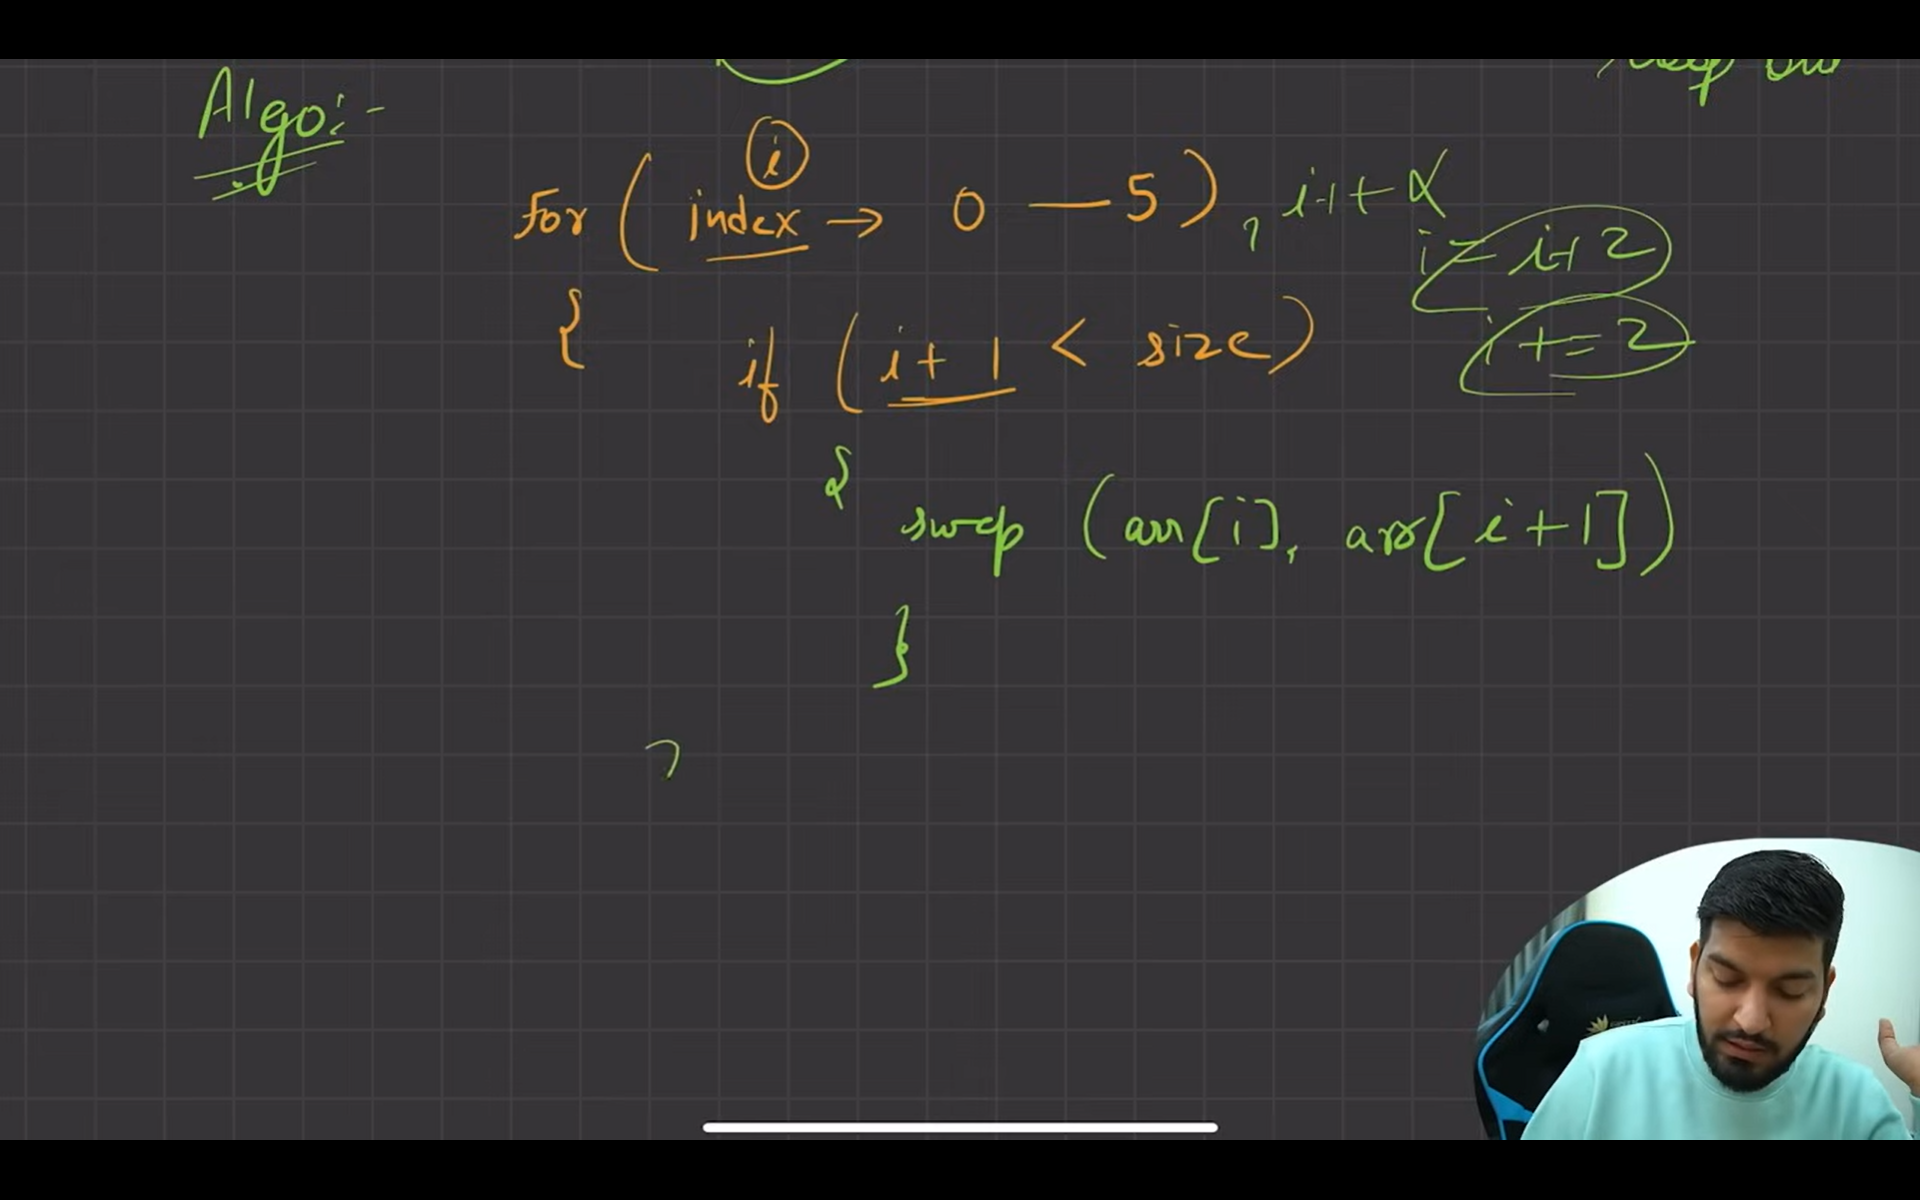 Algo:-
i
for ( index → 0 — 5 ) , i++ X
i = i+2
{ if ( i + 1 < size )
i += 2
{
swap ( arr[i], arr[i+1] )
}